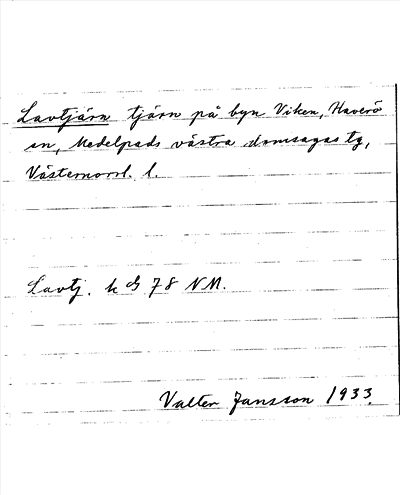 Lavtjärn tjärn på byn Viken, Haverö
sn, Medelpads västra domsagas tg,
Västernorrl. l.
Lavtj. k G 78 NM.
Valter Jansson 1933.